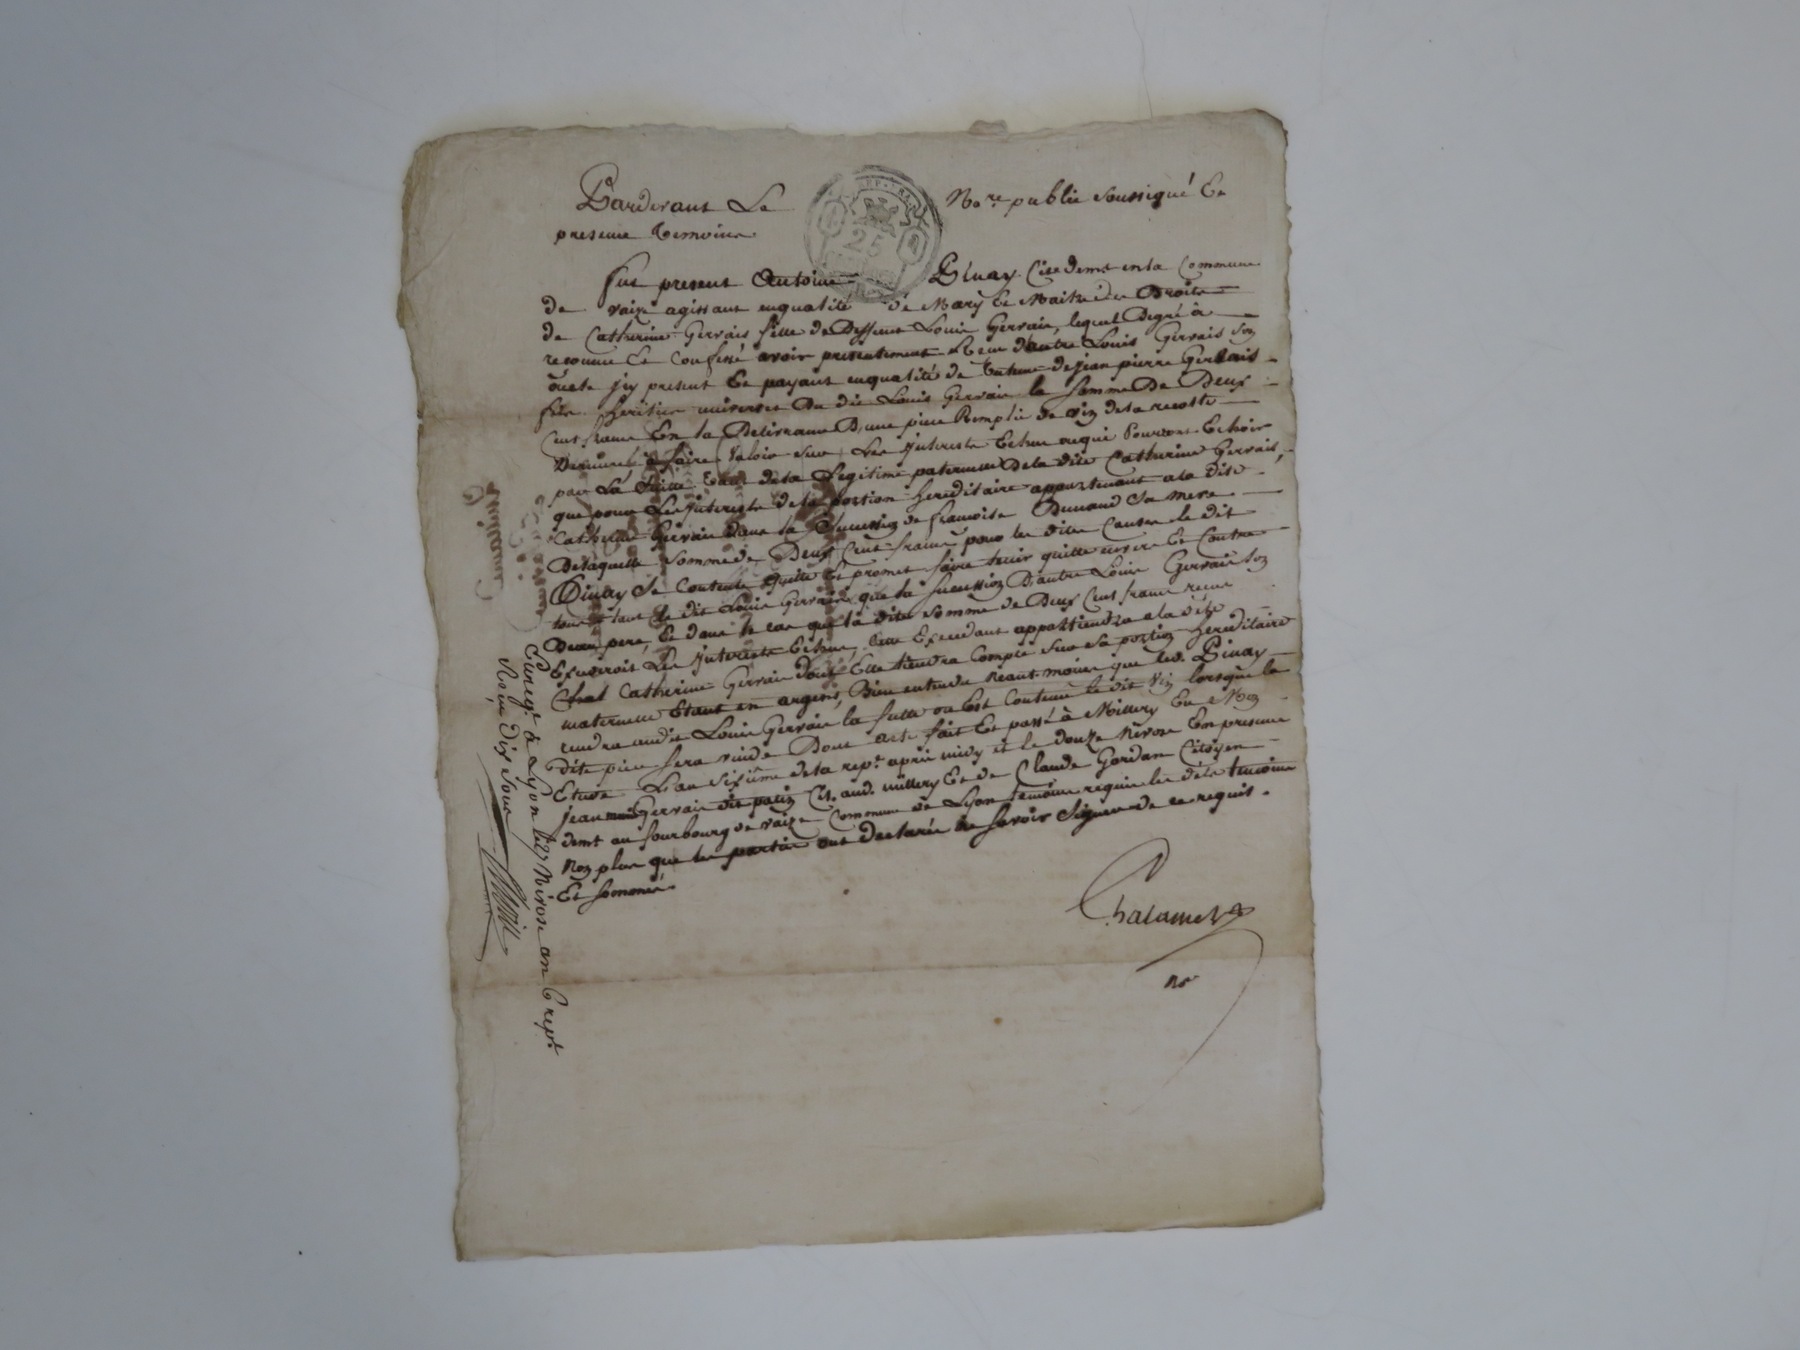 Pardevant Le Nore. public soussigné Et
presents temoins
fut present Antoine Pinay Citn demt en la Commune
de vaize agissant en qualité de Mary Et Maitre des Droits
de Catherine Gervais fille de Deffunt Louis Gervais, lequel Degré à
reconnu Et Confessé avoir presentement Receu d'autre Louis Gervais son
oncle jcy present Et payant en qualité de tuteur de jean pierre Gervais
fils heritier universel Du dit Louis Gervais la somme De Deux
Cent francs En la Delivrance D'une piece Remplie de vin de la recolte
Derniere, à faire Valoir sur Les jnterests Echus ou qui Pourront Echoir
par La Suitte tant de la Legitime paternelle De la dite Catherine Gervais,
que pour Les jnterests de la portion hereditaire appartenant a la Dite
Catherine Gervais dans la Succession de francoise Dunand Sa mere
De laquelle Somme de Deux Cent francs pour les dites Causes le dit
Pinay Se Contente quitte Et promet faire tenir quitte envers Et Contre
tous tant le dit Louis Gervais que la succession D'autre Louis Gervais son
Beau pere, Et dans le cas que la dite Somme de Deux Cent francs recue
Excederoit Les jnterests Echus, cette Excedant appartiendra a la dite
Catherine Gervais dont Elle tiendra Compte sur sa portion hereditaire
maternelle Etant en argent, Bien entendu neant moins que led. Pinay
rendra audit Louis Gervais la futte ou Est Contenu le dit Vin lorsque la
dite piece sera vuide Dont acte fait Et passé à Millery En Mon
Etude L'an Sixième de la rep.e après midy et le douze Nivose En presence
de jean Gervais dit patin Cit. aud. millery Et de Claude Gordan Citoyen
demt au fourbourg de vaize Commune de Lyon temoins requis les dits temoins
Non plus que les parties ont Declarés ne Savoir Signer de ce requis
Et sommés
Chalamel
nre
Enregt à Lyon le Nivose an 6 rept
Reçu dix sous